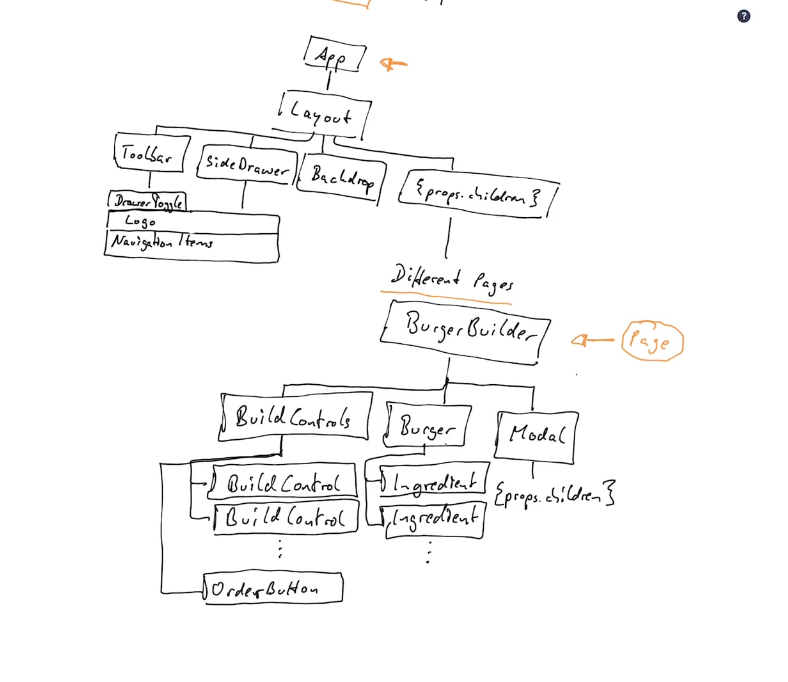 App
Layout
Toolbar
SideDrawer
Backdrop
{props.children}
DrawerToggle
Logo
Navigation Items
Different Pages
BurgerBuilder
Page
BuildControls
Burger
Modal
BuildControl
Ingredient
{props.children}
BuildControl
Ingredient
OrderButton
?